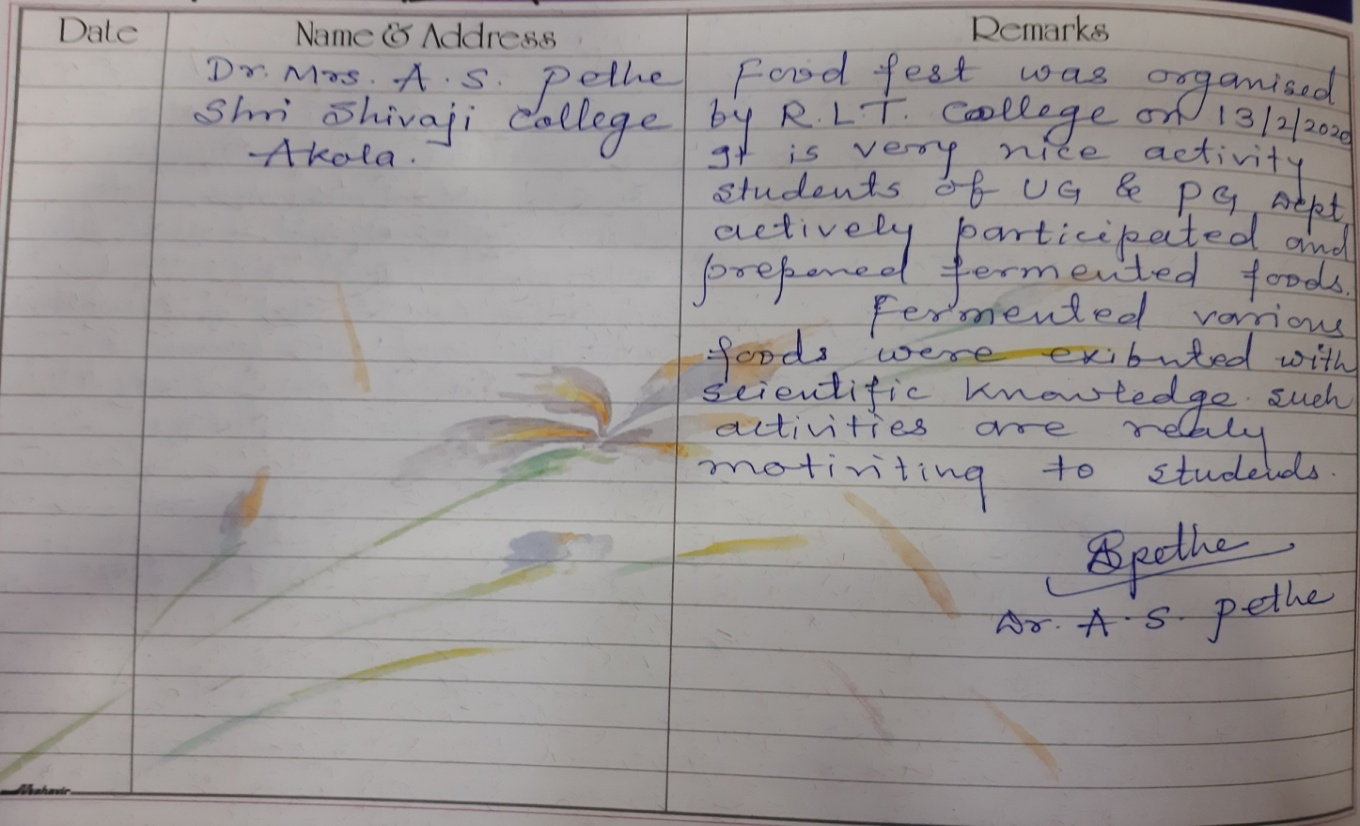 Date Name & Address Remarks
Dr. Mrs. A. S. Pethe
Shri Shivaji College
Akola.
Food fest was organised
by R.L.T. College on 13/2/2020
It is very nice activity
students of UG & PG Dept.
actively participated and
prepared fermented foods.
Fermented various
foods were exibuted with
scientific knowledge. such
activities are realy
motiviting to students.
ASpethe
Dr. A. S. Pethe
Mahavir